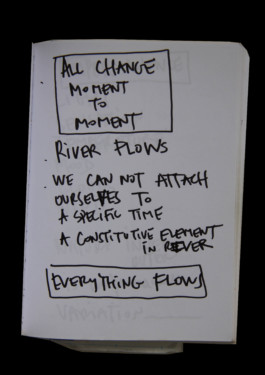 ALL CHANGE
MOMENT
TO
MOMENT
RIVER FLOWS
WE CAN NOT ATTACH
OURSELVES TO
A SPECIFIC TIME
A CONSTITUTIVE ELEMENT
IN RIVER
EVERYTHING FLOWS